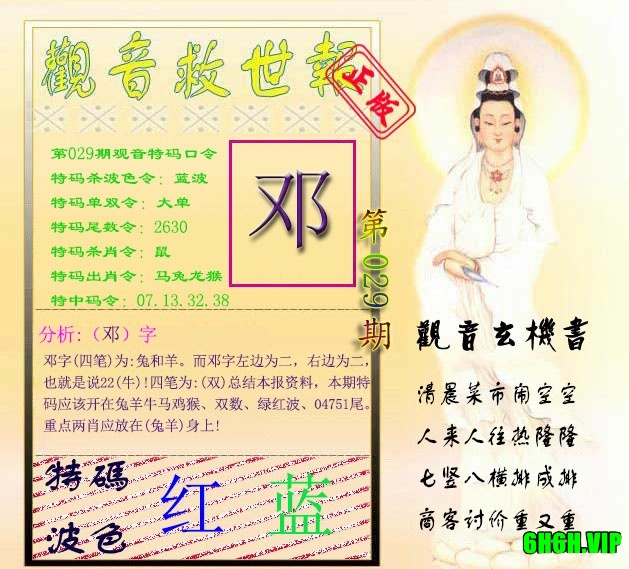 觀音救世報
正版
第029期观音特码口令
特码杀波色令：蓝波
特码单双令：大单
特码尾数令：2630
特码杀肖令：鼠
特码出肖令：马兔龙猴
特中码令：07.13.32.38
邓
第029期
分析:（邓）字
邓字(四笔)为:兔和羊。而邓字左边为二，右边为二，
也就是说22(牛)!四笔为:(双)总结本报资料，本期特
码应该开在兔羊牛马鸡猴、双数、绿红波、04751尾。
重点两肖应放在(兔羊)身上!
特碼
波色
红 蓝
觀音玄機書
清晨菜市闹空空
人来人往热隆隆
七竖八横排成排
商客讨价重又重
6H6H.VIP